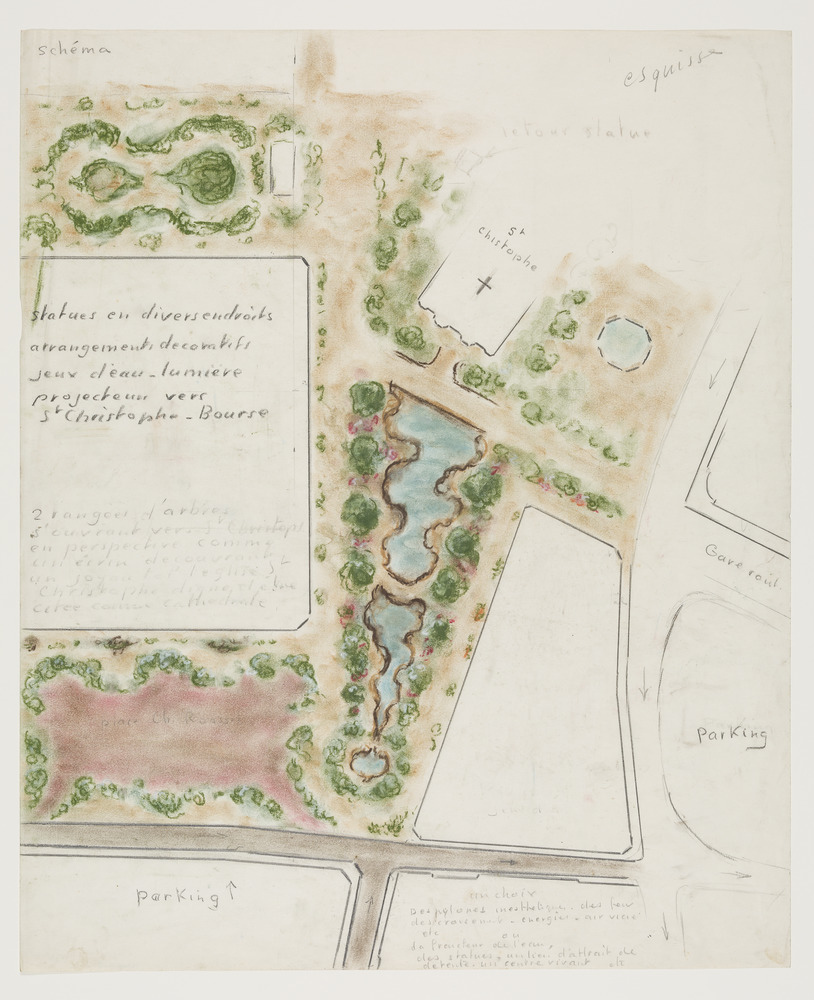 schéma
esquisse
retour statue
St
Christophe
statues en divers endroits
arrangements decoratifs
jeux d'eau - lumière
projecteur vers
St Christophe - Bourse
2 rangées d'arbres
s'ouvrant vers St
en perspective comme
un écrin découvrant
un joyau l'église St
Christophe
comme cathédrale
Gare rout.
place Ch. Rogier
Parking
parking ↑
un choix
Des pylones inesthetique. des feux
energies - air vicié
etc
ou
la fraicheur de l'eau,
des statues, milieu d'attrait de
detente. un centre vivant